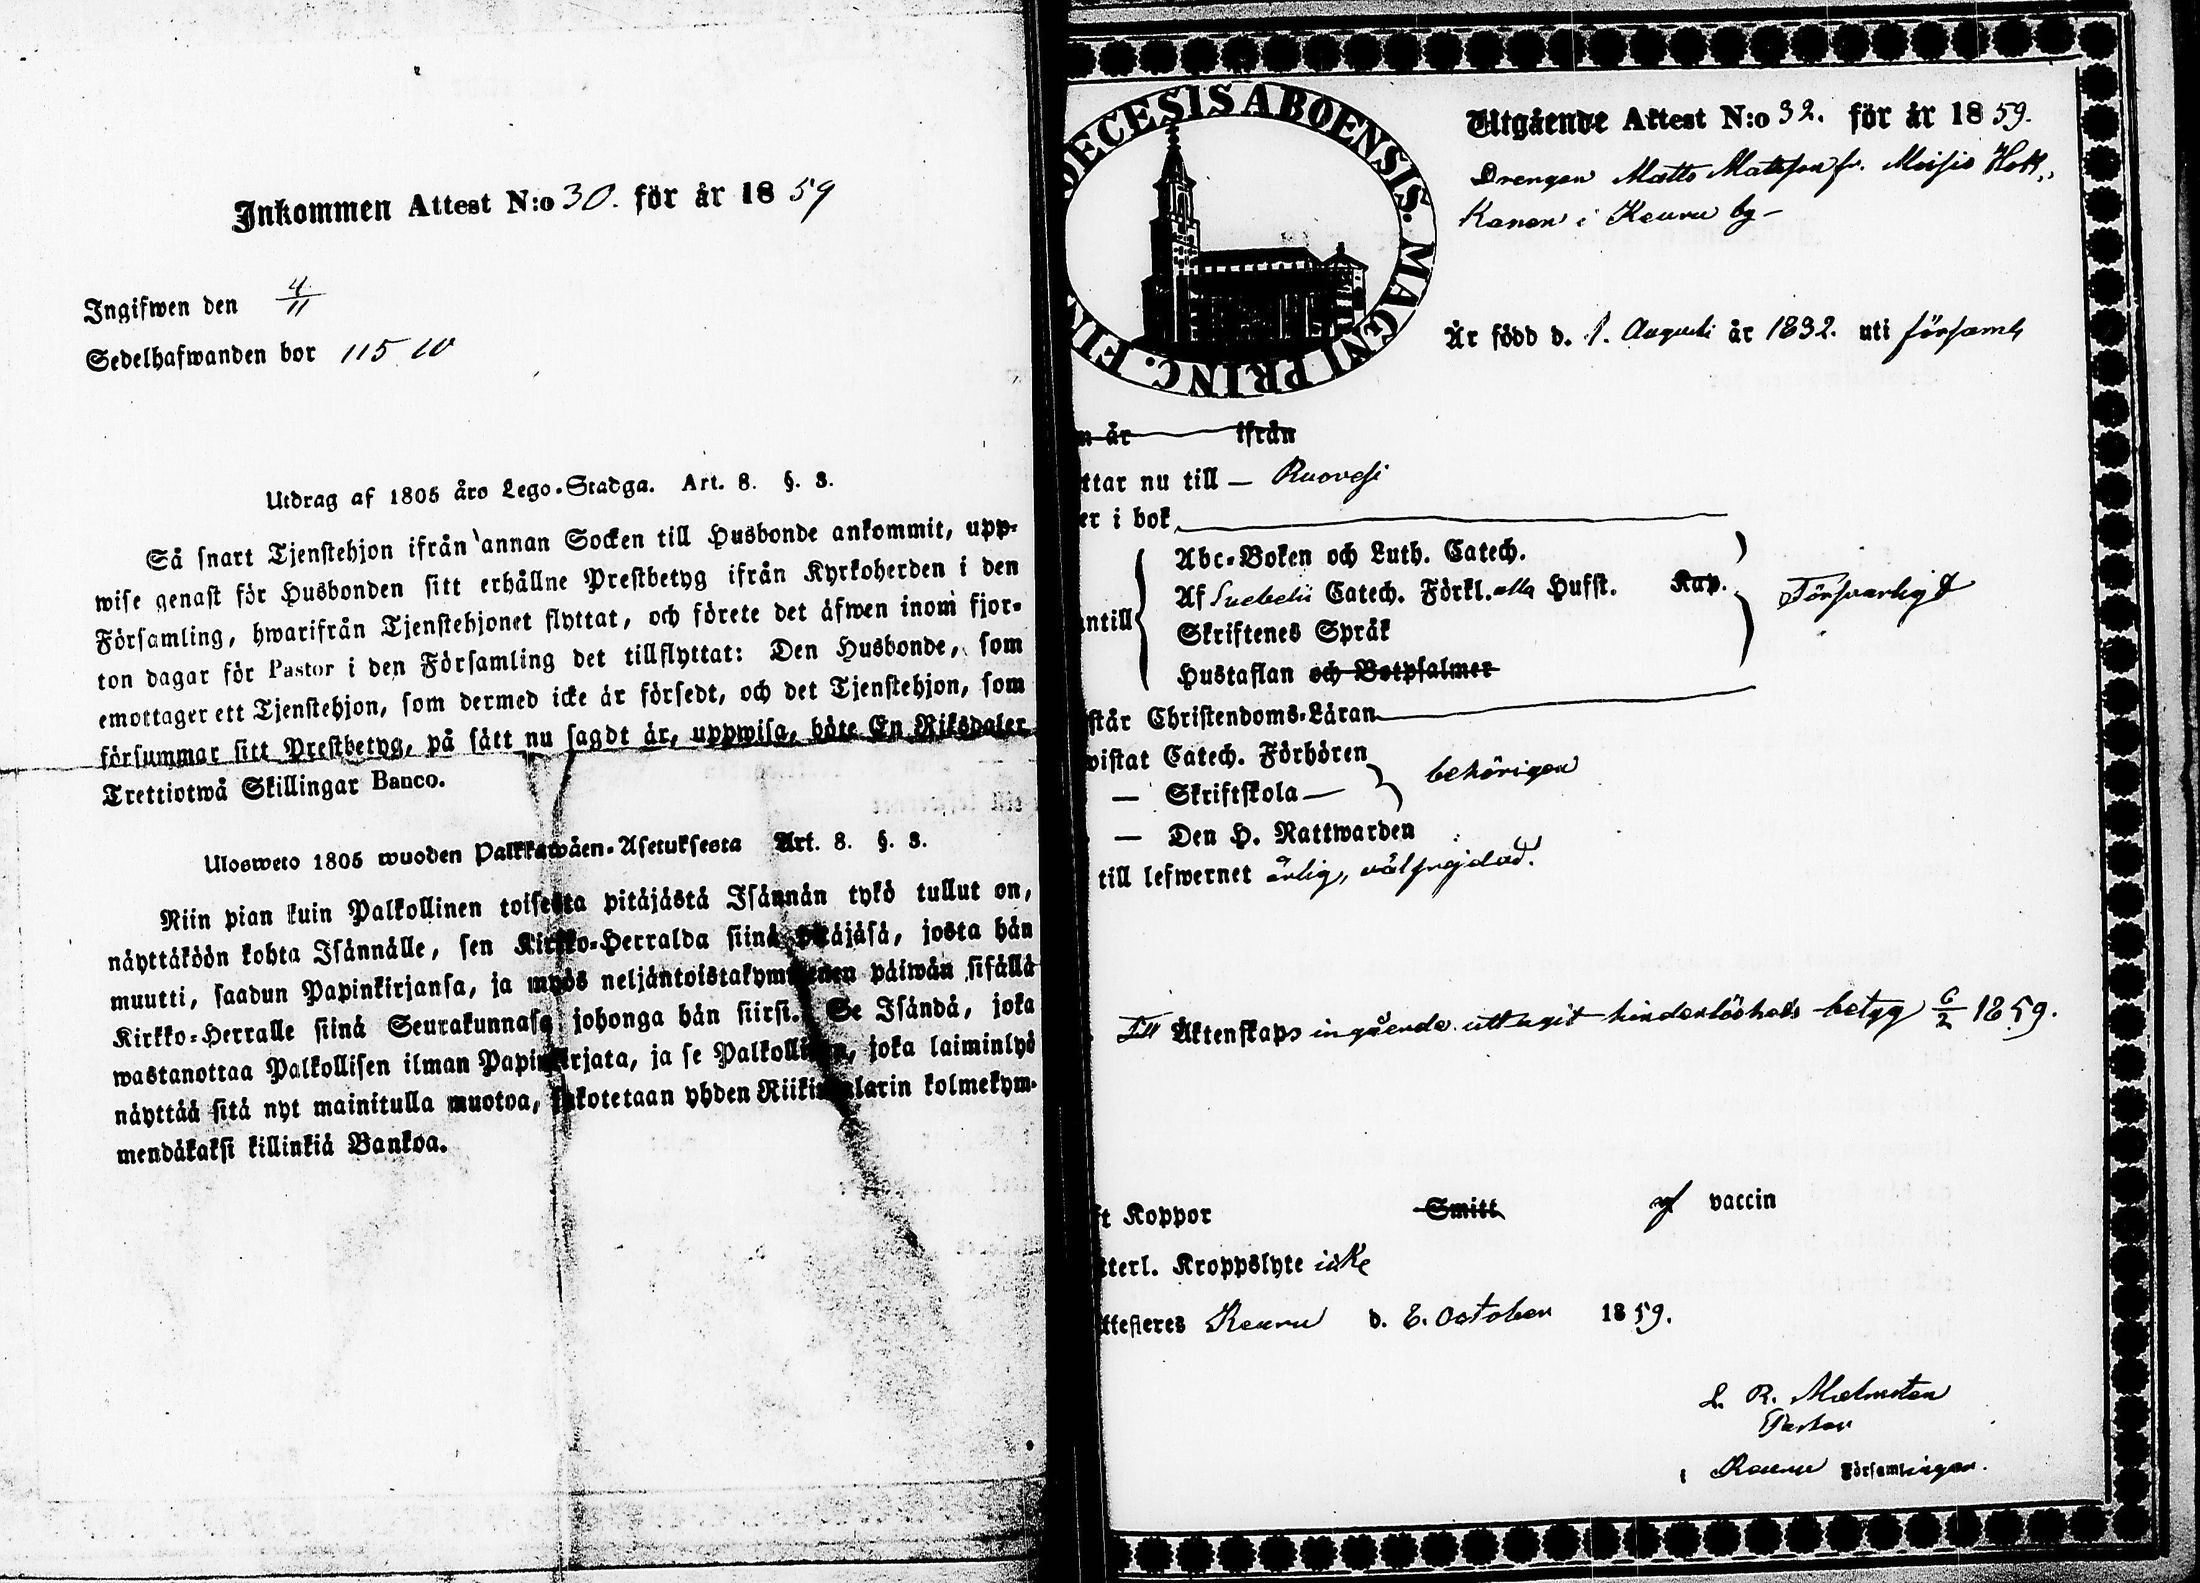 Inkommen Attest N:o 30. för år 1859
Ingifwen den 4/11
Sedelhafwanden bor 115 10
Utdrag af 1805 års Lego-Stadga. Art. 8. §. 3.
Så snart Tjenstehjon ifrån annan Socken till Husbonde ankommit, upp-
wise genast för Husbonden sitt erhållne Prestbetyg ifrån Kyrkoherden i den
Församling, hwarifrån Tjenstehjonet flyttat, och förete det äfwen inom fjor-
ton dagar för Pastor i den Församling det tillflyttat: Den Husbonde, som
emottager ett Tjenstehjon, som dermed icke är försedt, och det Tjenstehjon, som
försummar sitt Prestbetyg, på sätt nu sagdt är, uppwisa, böte En Riksdaler
Trettiotwå Skillingar Banco.
Ulosweto 1805 wuoden Palkkawäen-Asetuksesta Art. 8. §. 3.
Niin pian kuin Palkollinen toisesta pitäjästä Isännän tykö tullut on,
näyttäköön kohta Isännälle, sen Kirkko-Herralda siinä pitäjäsä, josta hän
muutti, saadun Papinkirjansa, ja myös neljäntoistakymmenen päiwän sisällä
Kirkko-Herralle siinä Seurakunnasa johonga hän siirsi. Se Isändä, joka
wastanottaa Palkollisen ilman Papinkirjata, ja se Palkollinen, joka laiminlyö
näyttää sitä nyt mainitulla muotoa, sakotetaan yhden Riikintalarin kolmekym-
mendäkaksi killinkiä Bankoa.
OECESIS ABOENSIS. MAGNI PRINC. FIN
Utgående Attest N:o 32. för år 1859.
Drengen Matts Matsson fr. Moisio Hok„
kanen i Keuru by –
Är född d. 1. Augusti år 1832. uti församl
n år ifrån
ttar nu till – Ruovesi
er i bok
Abc-Boken och Luth. Catech.
Af Svebelii Catech. Förkl. alla Hufst. Kap.
ntill Skriftenes Språk Försvarligt
Hustaflan och Botpsalmer
står Christendoms-Läran
wistat Catech. Förhören
— Skriftskola — behörigen
— Den H. Nattwarden
till lefwernet ärlig, välfrejdad.
Till Äktenskaps ingående uttagit hinderlöshets betyg 6/2 1859.
ft Koppor Smitt af vaccin
tterl. Kroppslyte icke
ttesteres Keuru d. 6. October 1859.
L. R. Malmsten
Pastor
i Keuru Församlingen.